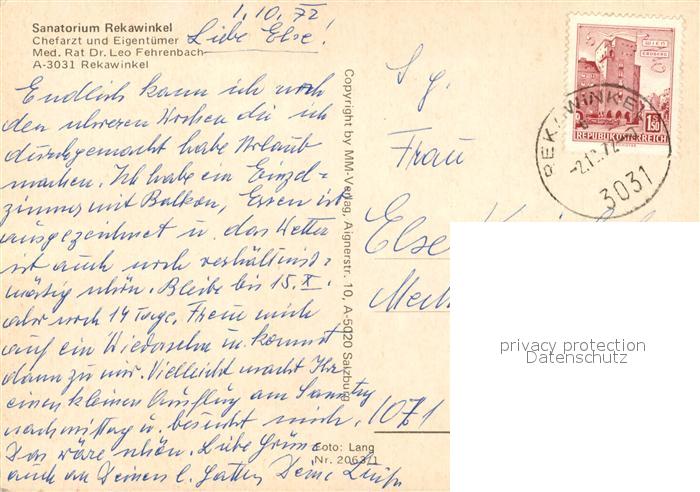 1.10.72
Sanatorium Rekawinkel
Chefarzt und Eigentümer
Med. Rat Dr. Leo Fehrenbach
A-3031 Rekawinkel
Liebe Else!
Endlich kann ich nach
den schweren Wochen die ich
durchgemacht habe Urlaub
machen. Ich habe ein Einzel=
zimmer mit Balkon, Essen ist
ausgezeichnet u. das Wetter
ist auch noch verhältnis=
mäßig schön. Bleibe bis 15.X.
also noch 14 Tage. Freue mich
auf ein Wiedersehn u. kommst
dann zu mir. Vielleicht macht Ihr
einen kleinen Ausflug am Samstag
nachmittag u. besucht mich.
Das wäre schön. Liebe Grüße
auch an Deinen l. Gatten Deine
Copyright by MM-Verlag, Aignerstr. 10, A-5020 Salzburg
Foto: Lang
Nr. 2063/1
S. g.
Frau
Else
1071
WIEN
ERDBERG
1.50
REPUBLIK ÖSTERREICH
REKAWINKEL
3031
privacy protection
Datenschutz